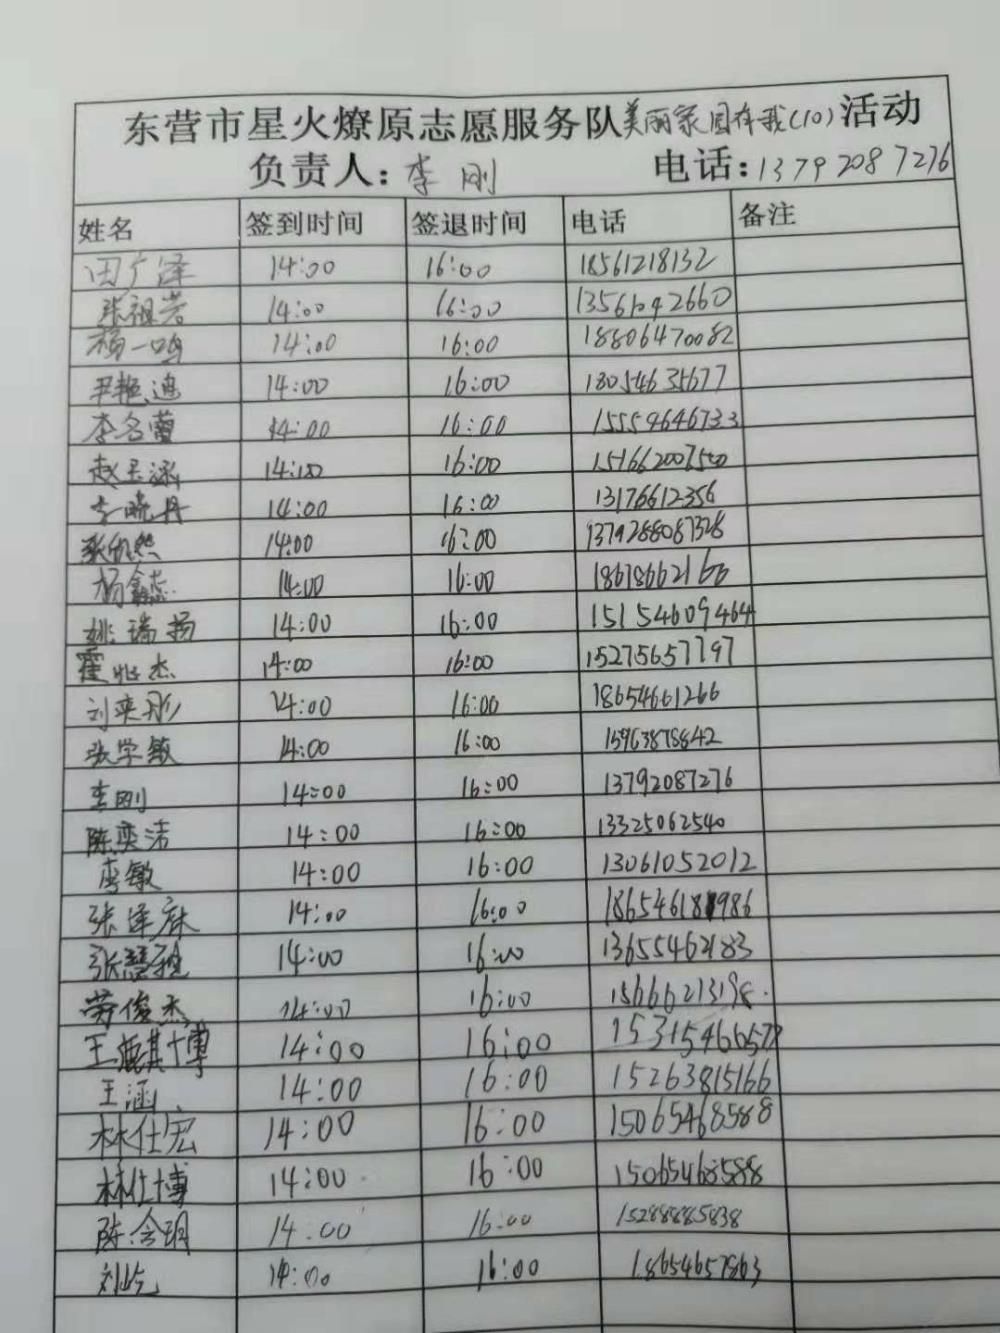 东营市星火燎原志愿服务队美丽家园有我(10)活动
负责人:李刚 电话:13792087276
姓名 签到时间 签退时间 电话 备注
田广泽 14:00 16:00 18561218132
张祖芳 14:00 16:00 13561042660
杨一鸣 14:00 16:00 18806470082
尹艳迪 14:00 16:00 18054635677
李名蕾 14:00 16:00 15554646733
赵玉涵 14:00 16:00 151662007500
李晓丹 14:00 16:00 13176612356
张欣然 14:00 16:00 1379288087328
杨鑫蕊 14:00 16:00 18678662166
姚瑞扬 14:00 16:00 15154609464
霍兆杰 14:00 16:00 15275657797
刘奕彤 14:00 16:00 18654661266
张学敏 14:00 16:00 15963878842
李刚 14:00 16:00 13792087276
陈奕洁 14:00 16:00 13325062540
李敏 14:00 16:00 13061052012
张泽麻 14:00 16:00 18654618986
张慧雅 14:00 16:00 13655462183
劳俊杰 14:00 16:00 15666213198
王麒博 14:00 16:00 15315466578
王涵 14:00 16:00 15263815166
林仕宏 14:00 16:00 15065468588
林仕博 14:00 16:00 15065468588
陈含玥 14:00 16:00 15288885838
刘屹 14:00 16:00 18654657863